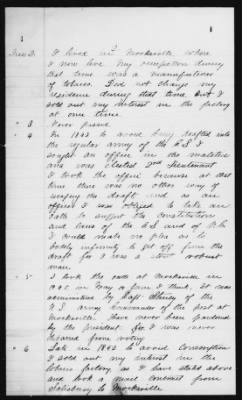 Ans 2. I lived in Mocksville where
I now live My occupation during
that time was a manufacturer
of tobacco. I did not change my
residence during that time but I
sold out my interest in the factory
at one time.
" 3 Never
" 4 In 1863 to avoid being drafted into
the regular army of the C.S. I
sought an office in the malitia
and was elected 2nd Lieutenant
I took the office because at that
time there was no other way of
escaping the draft and as an
officer I was obliged to take an
oath to support the constitution
and laws of the C.S. and of N.C.
I could make no plea as to
bodily infirmity to get off from the
draft for I was a robust
man.
" 5 I took the oath at Mocksville in
1865 in May or June I think. It was
administered by
U.S. army commander of the post at
Mocksville. Have never been pardoned
by the president for I was never
debarred from voting
" 6 Late in 1862 to avoid Conscription
I sold out my interest in the
tobacco factory as I have stated above
and took a mail contract from
Salisbury to Mocksville